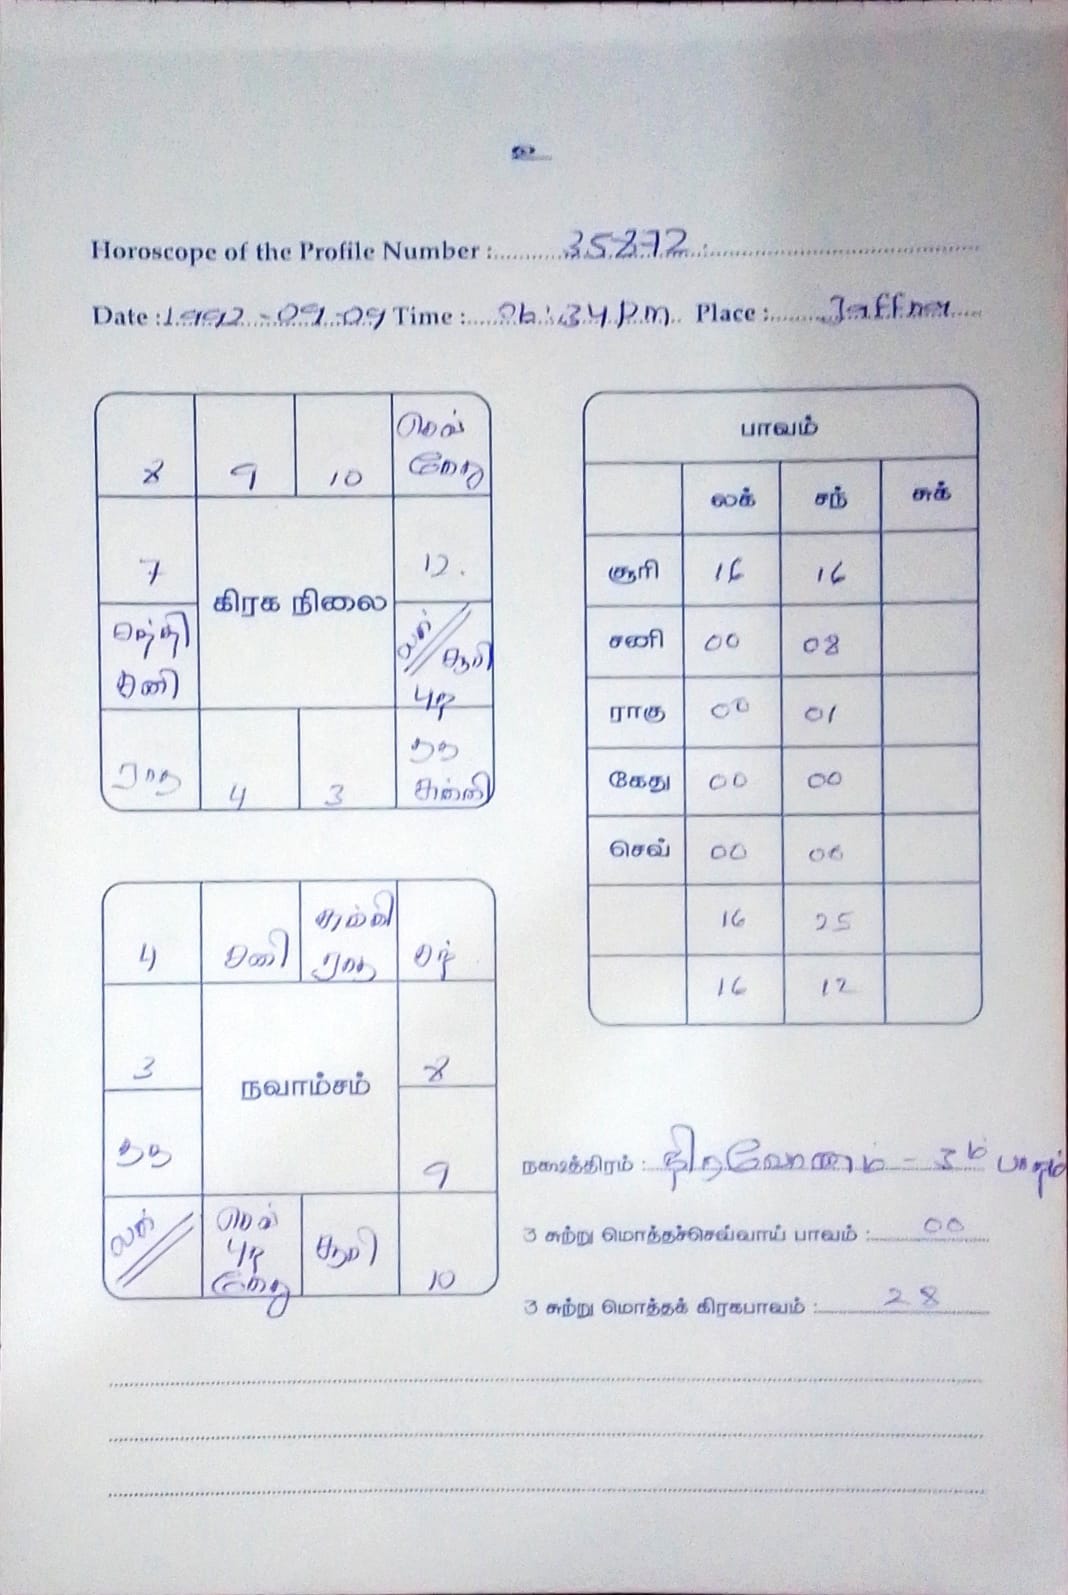 உ
Horoscope of the Profile Number : 35872
Date : 1992 - 09 - 09 Time : 06 : 34 pm Place : Jaffna
8 9 10 செவ்
கேது
7 12.
கிரக நிலை
சந்தி
சனி
லக் சூரி
புத
ராகு 4 3 குரு
சுக்கி
பாவம்
லக் சந் சுக்
சூரி 16 16
சனி 00 08
ராகு 00 01
கேது 00 00
செவ் 00 00
16 25
16 12
4 சனி சுக்கி
ராகு சந்
3 8
நவாம்சம்
குரு 9
லக் செவ்
புத
கேது சூரி 10
நட்சத்திரம் : திருவோணம் - 3ம் பாதம்
3 சுற்று மொத்தச்செவ்வாய் பாவம் : 00
3 சுற்று மொத்தக் கிரகபாவம் : 28